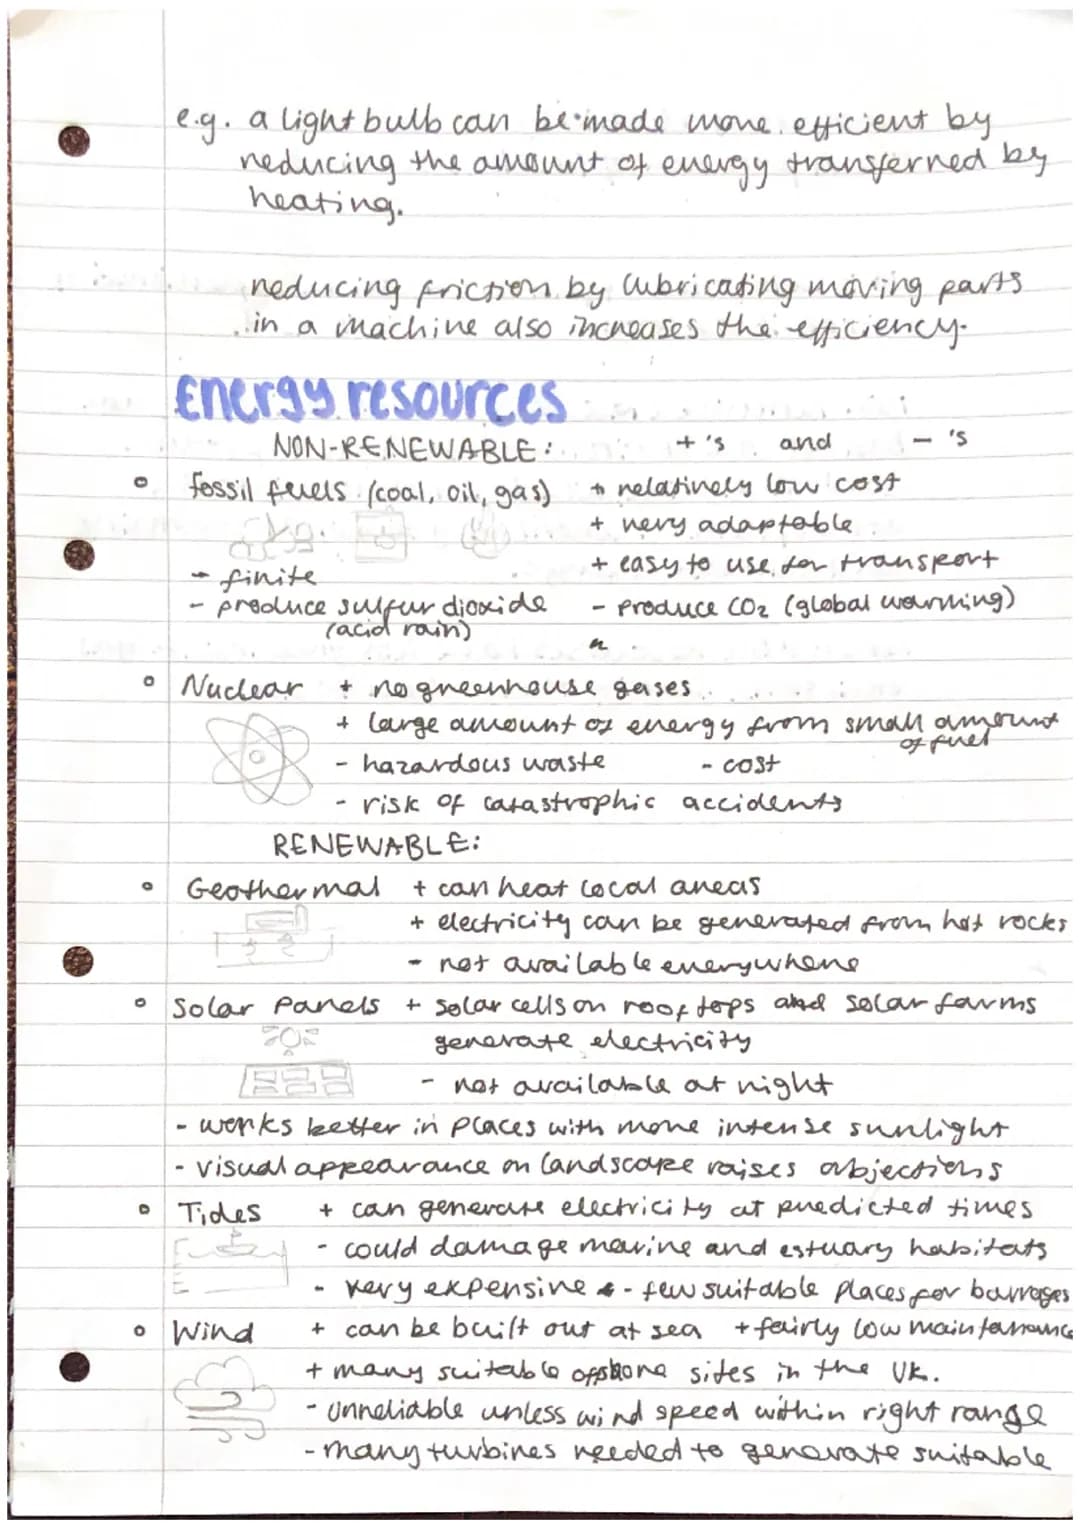 e.g. a light bulb can be made more efficient by
reducing the amount of energy transferred by
heating.
reducing friction by lubricating moving parts
in a machine also increases the efficiency.
Energy resources
NON-RENEWABLE: + 's and - 's
fossil fuels (coal, oil, gas) + relatively low cost
+ very adaptable
+ easy to use for transport
- finite
- produce sulfur dioxide - produce CO2 (global warming)
(acid rain)
Nuclear + no greenhouse gases
+ large amount of energy from small amount
of fuel
- hazardous waste - cost
- risk of catastrophic accidents
RENEWABLE:
Geothermal + can heat local areas
+ electricity can be generated from hot rocks
- not available everywhere
Solar Panels + solar cells on roof tops and solar farms
generate electricity
- not available at night
- works better in places with more intense sunlight
- visual appearance on landscape raises objections
Tides + can generate electricity at predicted times
- could damage marine and estuary habitats
- very expensive - few suitable places for barrages
Wind + can be built out at sea + fairly low maintenance
+ many suitable offshore sites in the UK.
- unreliable unless wind speed within right range
- many turbines needed to generate suitable